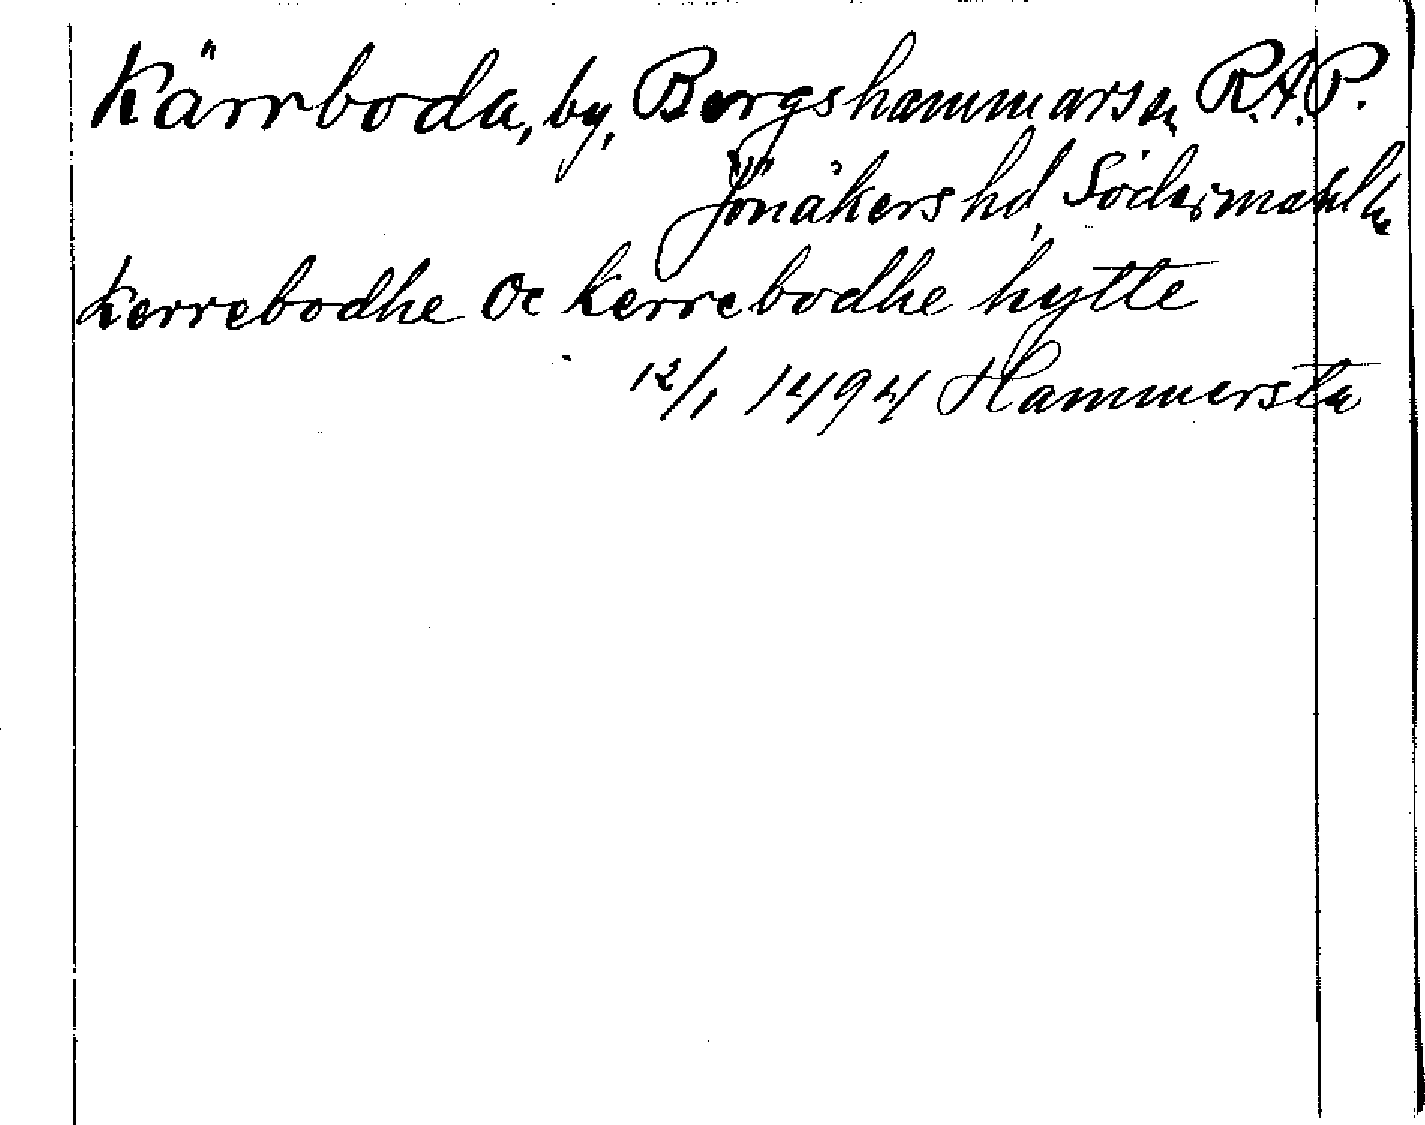 Kärrboda, by, Bergshammars sn, R.A.P.
Jönåkers hd, Södermanl. l.
Kerrebodhe oc kerrebodhe hytte
12/1 1494 Hammersta